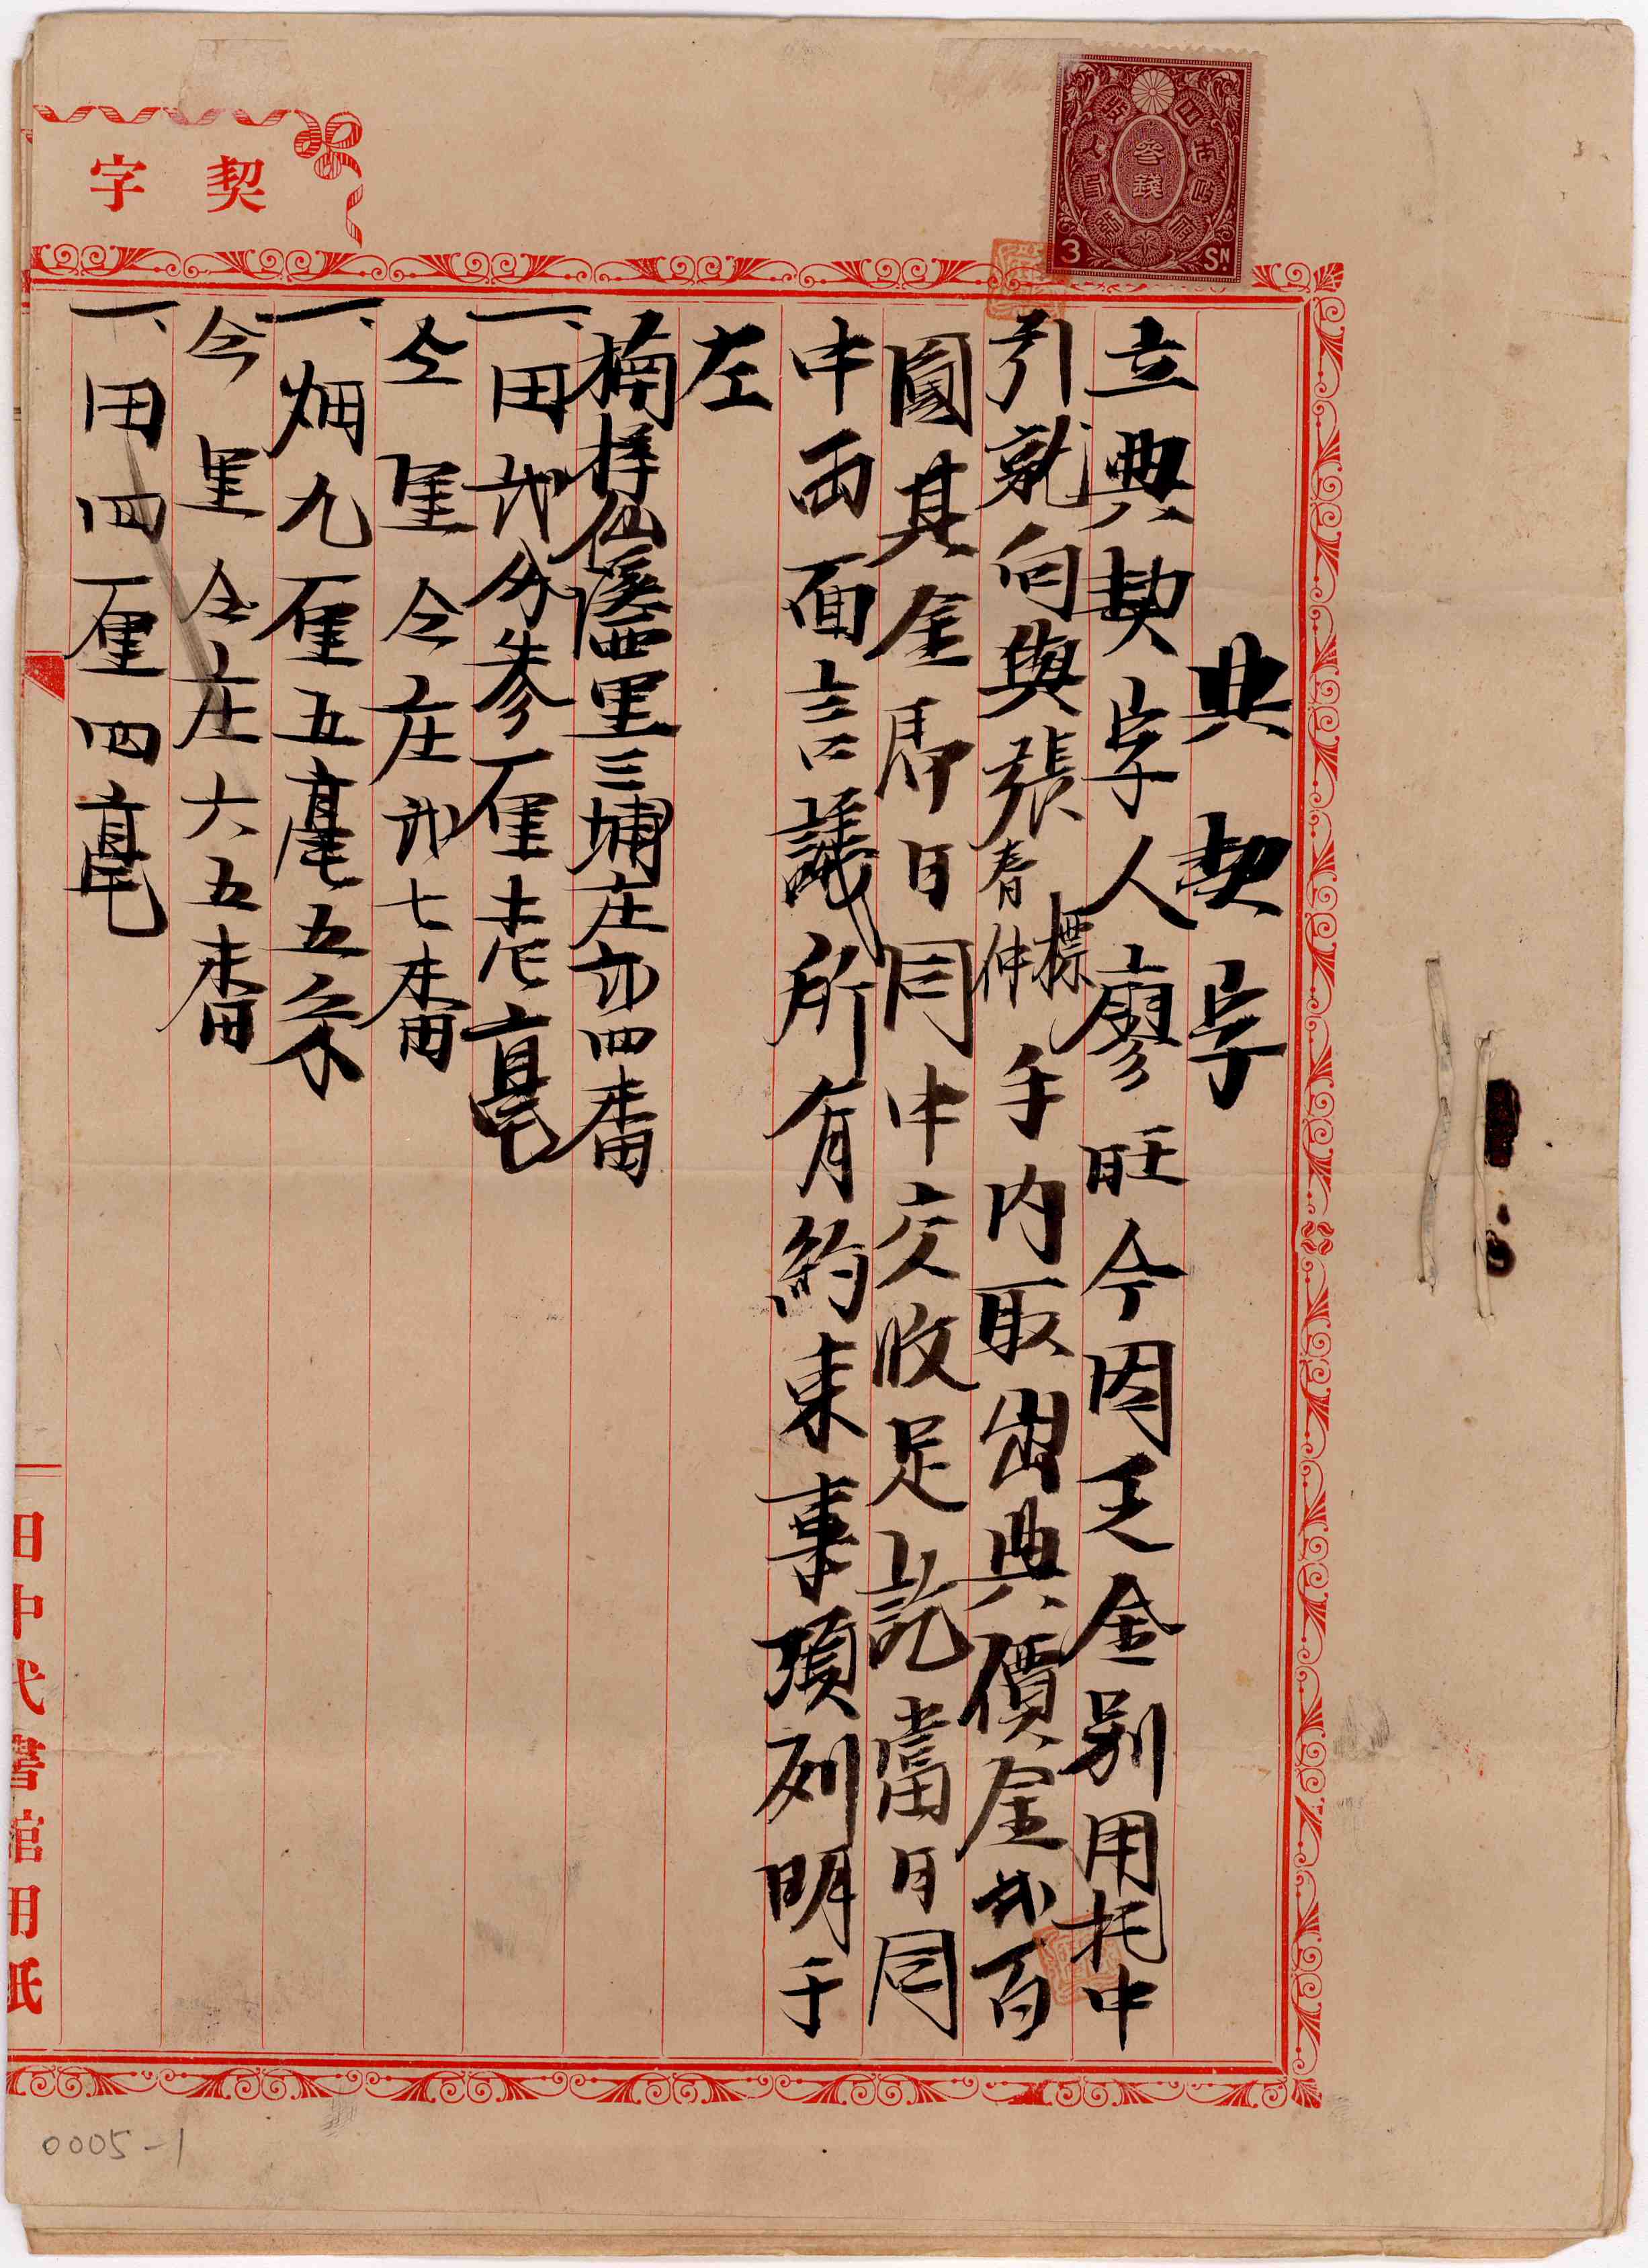 契字
參錢
3 SN.
典契字
立典契字人廖旺今因乏金别用托中
引就向與張春標伸手内取出典價金弍百
圓其金即日同中交收足訖當日同
中面面言議所有約束事項列明于
左
楠梓仙溪西里三埔庄弍四番
一、田弍分參厘壱毫
仝里仝庄弍七番
一、畑九厘五毫五糸
仝里仝庄六五番
一、田四厘四毫
田中代書館用紙
0005-1